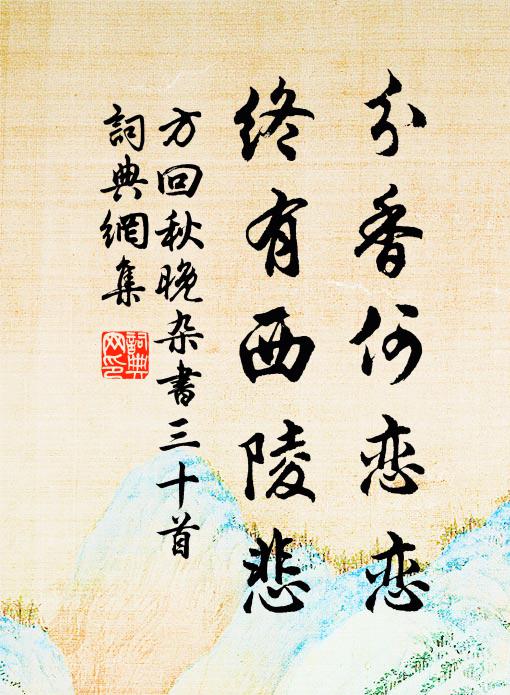 分香何恋恋
终有西陵悲
方回秋晚杂書三十首
詞典網集
詞典網印